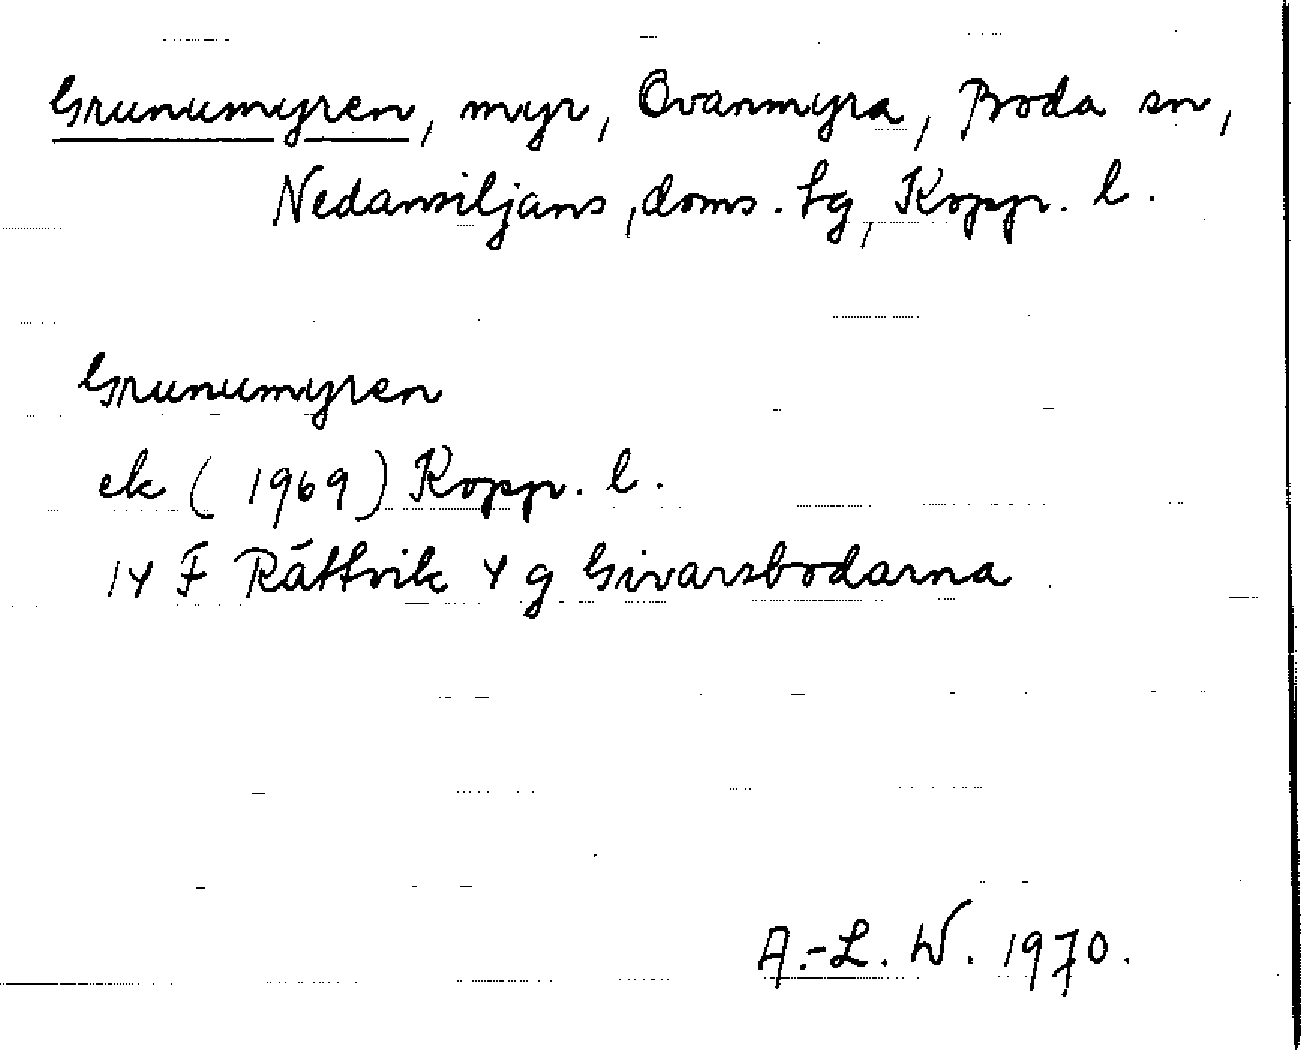 Grunumyren, myr, Ovanmyra, Boda sn,
Nedansiljans, doms. tg, Kopp. l.
Grunumyren
ek (1969) Kopp. l.
14 F Rättvik 4 g Givarsbodarna
A.-L. W. 1970.